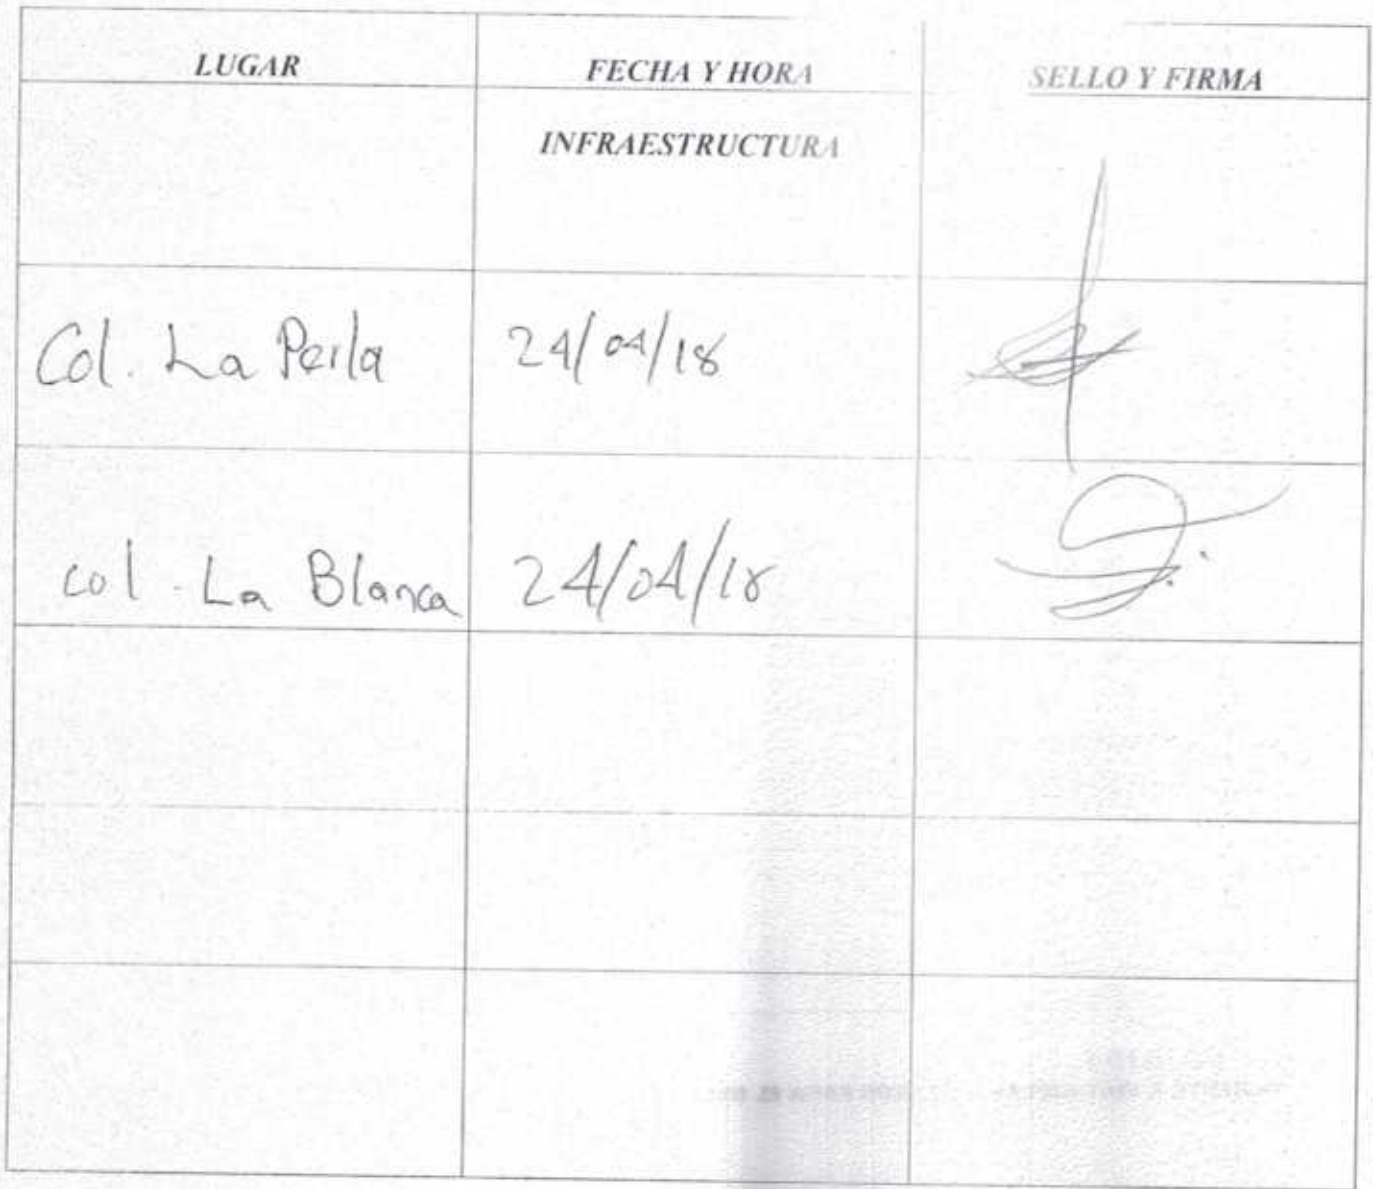 LUGAR FECHA Y HORA SELLO Y FIRMA
INFRAESTRUCTURA
Col. La Perla 24/04/18
col. La Blanca 24/04/18